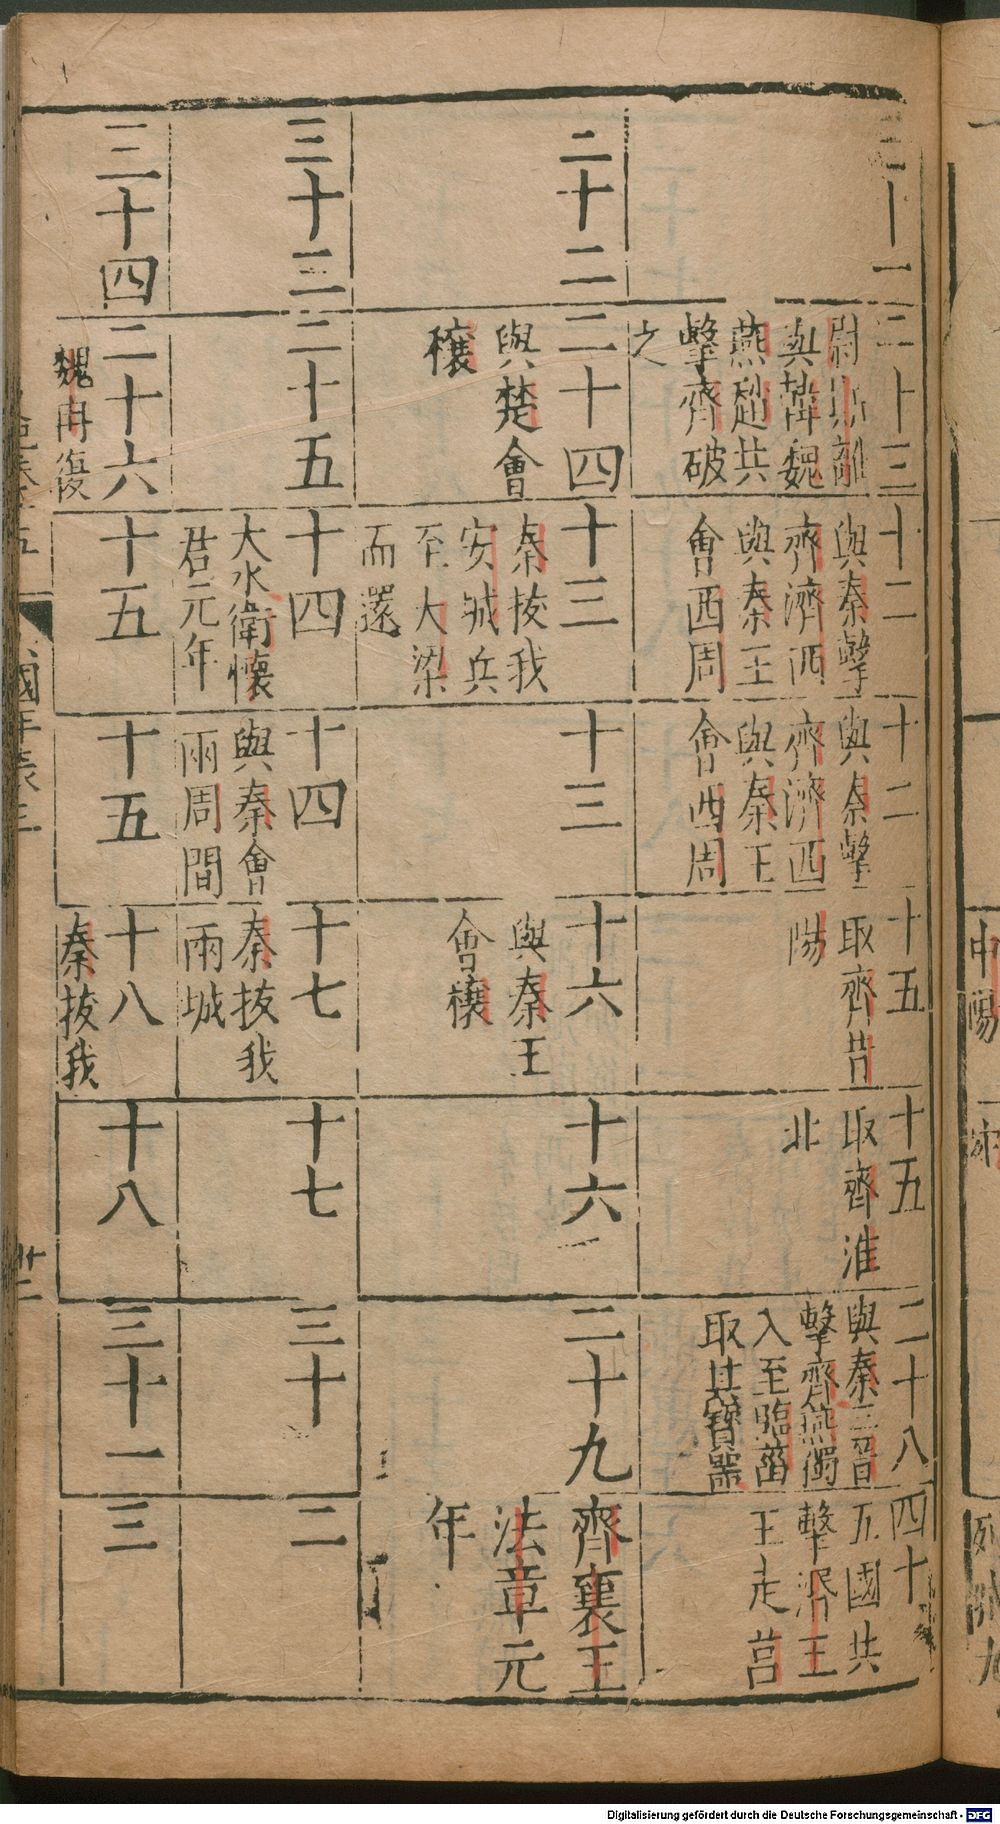 三十一
二十三
尉斯離
與韓魏
燕趙共
擊齊破
之
十二
與秦擊
齊濟西
與秦王
會西周
十二
與秦擊
齊濟西
與秦王
會西周
十五
取齊昔
陽
十五
取齊淮
北
二十八
與秦三晉
擊齊燕獨
入至臨菑
取其寶器
四十
五國共
擊湣王
王走莒
三十二
二十四
與楚會
穰
十三
秦拔我
安城兵
至大梁
而還
十三
十六
與秦王
會穰
十六
二十九
齊襄王
法章元
年
三十三
二十五
十四
大水衛懷
君元年
十四
與秦會
兩周間
十七
秦拔我
兩城
十七
三十
二
三十四
二十六
魏冉復
十五
十五
十八
秦拔我
十八
三十一
三
國年表三
廿二
中陽
Digitalisierung gefördert durch die Deutsche Forschungsgemeinschaft - DFG